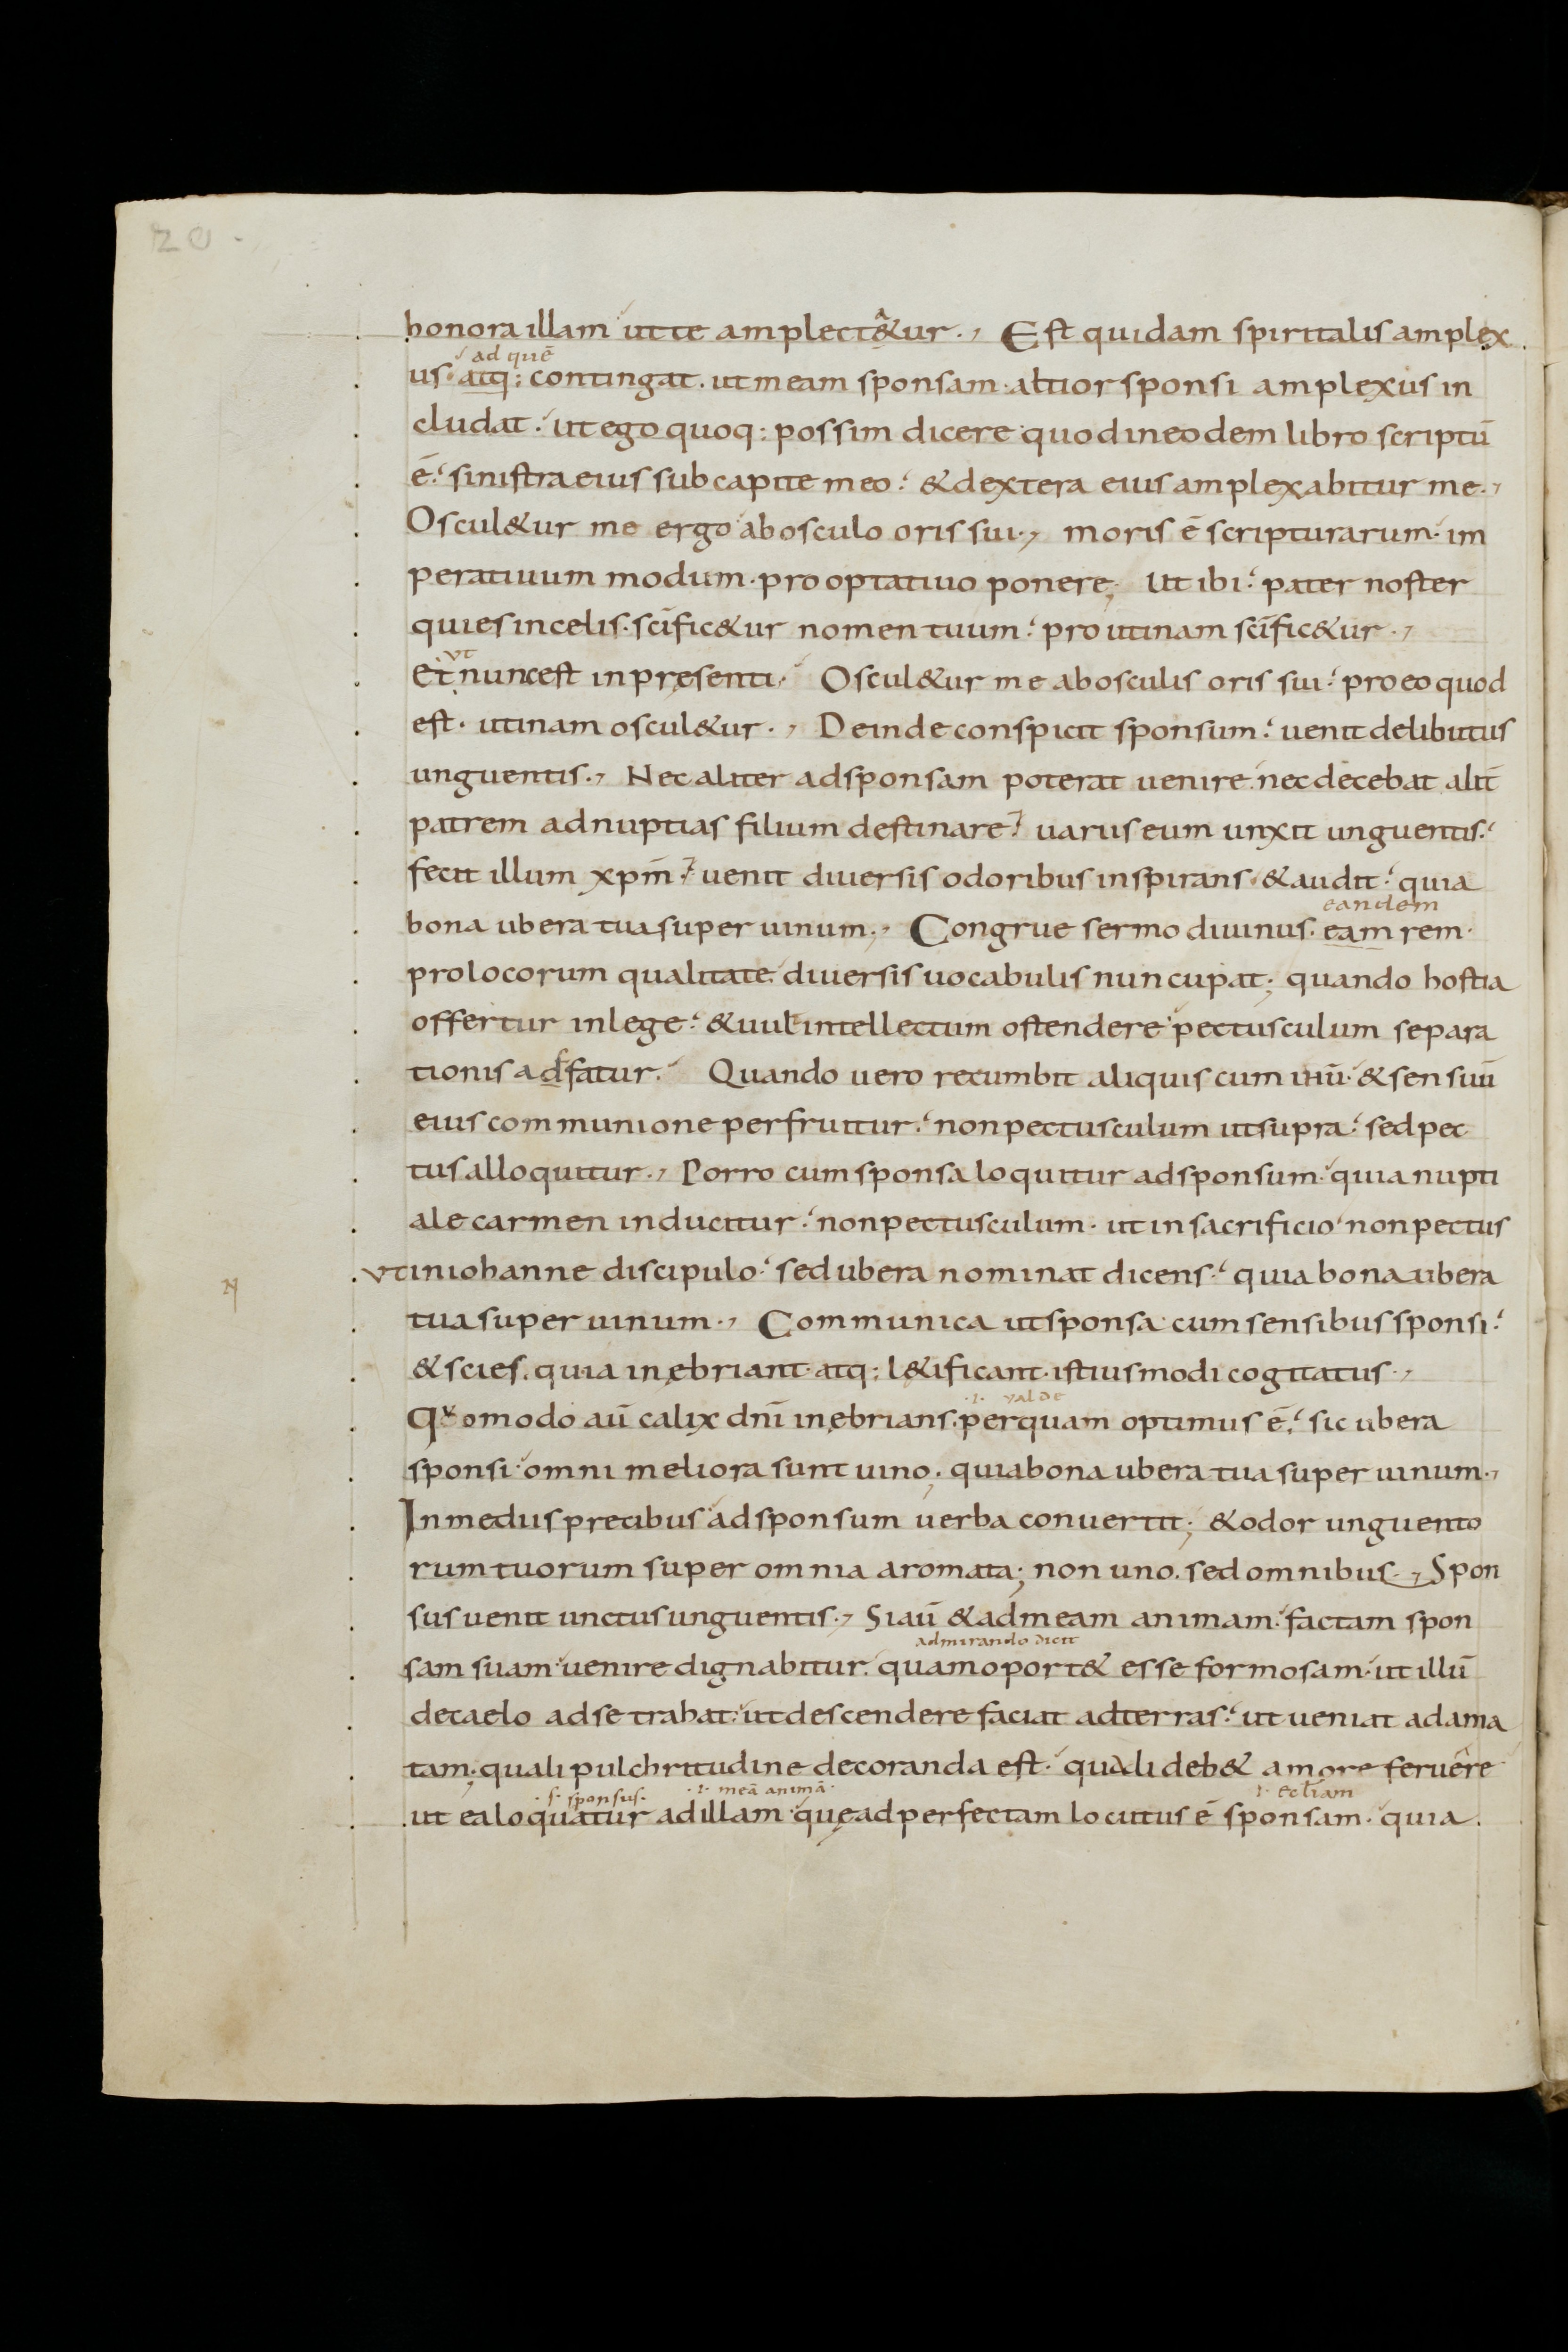 20
honora illam ut te amplect&ur. Est quidam spiritalis amplex
ad quē
us. atq; contingat. ut meam sponsam. altior sponsi amplexus in
cludat. ut ego quoq; possim dicere quod in eodem libro scriptū
ē. sinistra eius sub capite meo. & dextera eius amplexabitur me.
Oscul&ur me ergo ab osculo oris sui. moris ē scripturarum. im
peratiuum modum. pro optatiuo ponere; Ut ibi. pater noster
qui es in celis. scīfic&ur nomen tuum. pro utinam scīfic&ur.
vt
Et nunc est in pręsenti. Oscul&ur me ab osculis oris sui. pro eo quod
est. utinam oscul&ur. Deinde conspicit sponsum. uenit delibutus
unguentis. Nec aliter ad sponsam poterat uenire. nec decebat alit̄
patrem ad nuptias filium destinare. uariis eum unxit unguentis.
fecit illum xpm̄. uenit diuersis odoribus inspirans. & audit. quia
eandem
bona ubera tua super uinum. Congrue sermo diuinus. eam rem.
pro locorum qualitate. diuersis uocabulis nuncupat; quando hostia
offertur in lege. & uult intellectum ostendere pectusculum separa
tionis adfatur. Quando uero recumbit aliquis cum ihū. & sensuū
eius communione perfruitur. non pectusculum ut supra. sed pec
tus alloquitur. Porro cum sponsa loquitur ad sponsum. quia nupti
ale carmen inducitur. non pectusculum. ut in sacrificio non pectus
vt in iohanne discipulo. sed ubera nominat dicens. quia bona ubera
tua super uinum. Communica ut sponsa cum sensibus sponsi.
& scies. quia inębriant. atq; l&ificant. istiusmodi cogitatus.
.i. valde
Qvomodo aū calix dnī inębrians. perquam optimus ē. sic ubera
sponsi. omni meliora sunt uino; quia bona ubera tua super uinum.
In mediis precibus ad sponsum uerba conuertit; & odor unguento
rum tuorum super omnia aromata; non uno. sed omnibus. Spon
sus uenit unctus unguentis. Si aū & ad meam animam. factam spon
admirando dicit
sam suam. uenire dignabitur. quam oport& esse formosam. ut illū
de caelo ad se trahat. ut descendere faciat ad terras. ut ueniat ad ama
tam; quali pulchritudine decoranda est. quali deb& amore feruere
.s. sponsus. .i. meā animā. .i. eccłiam
ut ea loquatur ad illam. quę ad perfectam locutus ē sponsam. quia